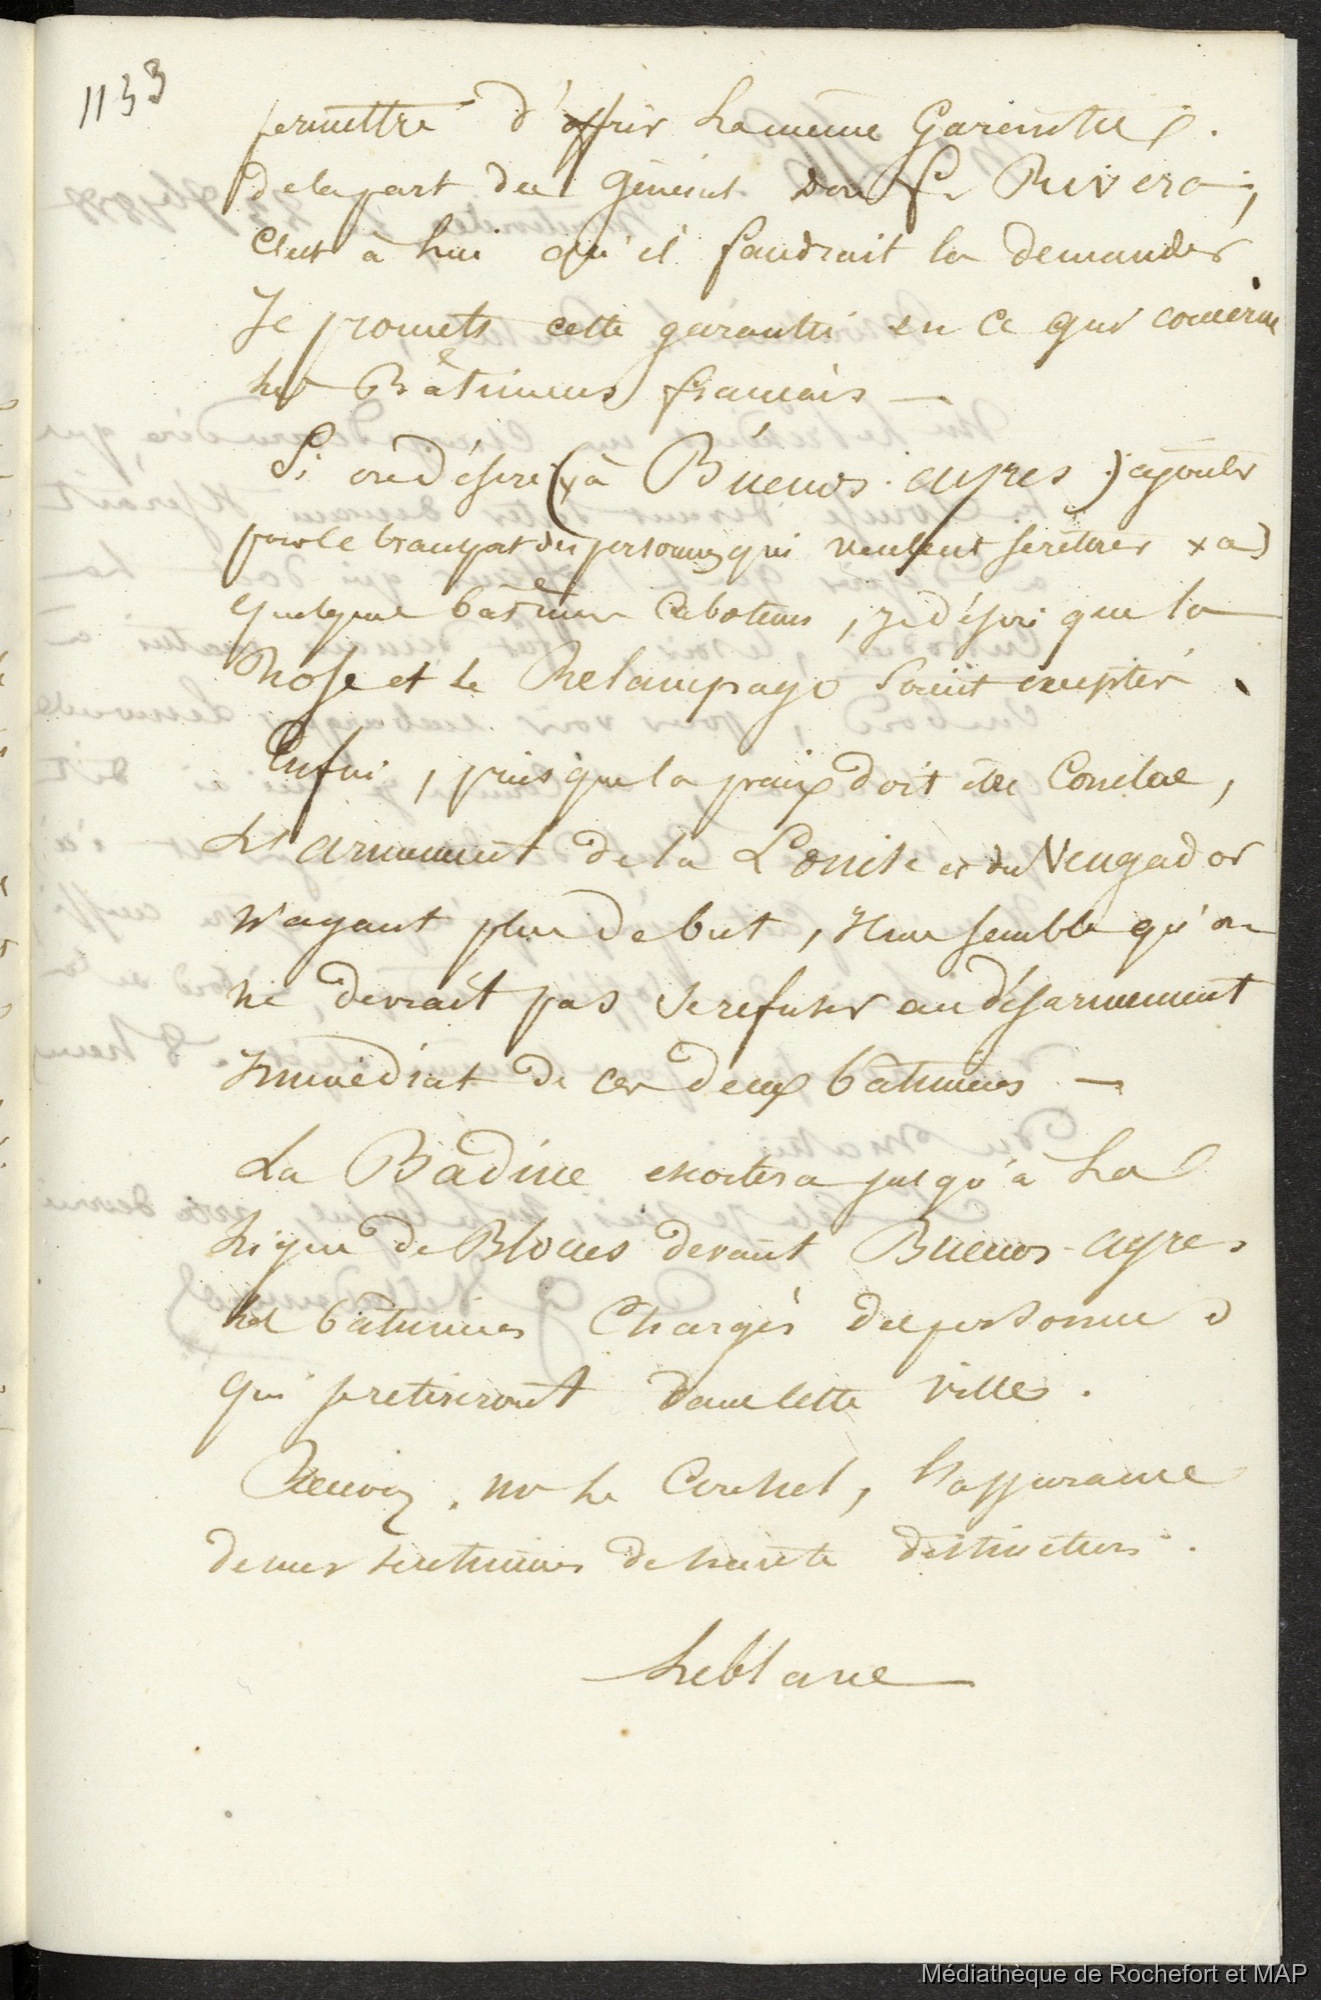 1133
permettre d'offrir la même Garentie
de la part du Général Don f. Rivera ;
C'est à lui qu'il faudrait la demander
Je promets cette garantie en ce qui concerne
les Bâtimens francais —
Si on désire (x à Buenos-ayres) ajouter
pour le transport des personnes qui veulent se retirer x a)
quelque bâtimens Caboteurs, je désire que la
Rose et le Relampago soient exceptés.
Enfin, puisque la paix doit être Conclue,
L'armement de la Louise et du Vengador
n'ayant plus de but, il me semble qu'on
ne devrait pas se refuser au désarmement
Immédiat de ces deux bâtimens —
La Badine escortera jusqu'à La
Ligne de Blocus devant Buenos-ayres
les bâtimens Chargés de personnes
qui se retireront dans cette ville.
Recevez, Mr Le Consul, l'assurance
de mes sentimens de haute distinction.
Leblanc
Médiathèque de Rochefort et MAP